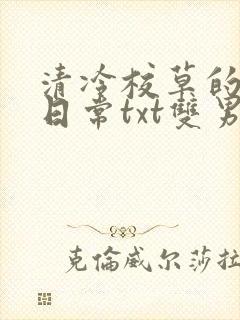 清冷校草的
日常txt雙男
克倫威尔莎拉